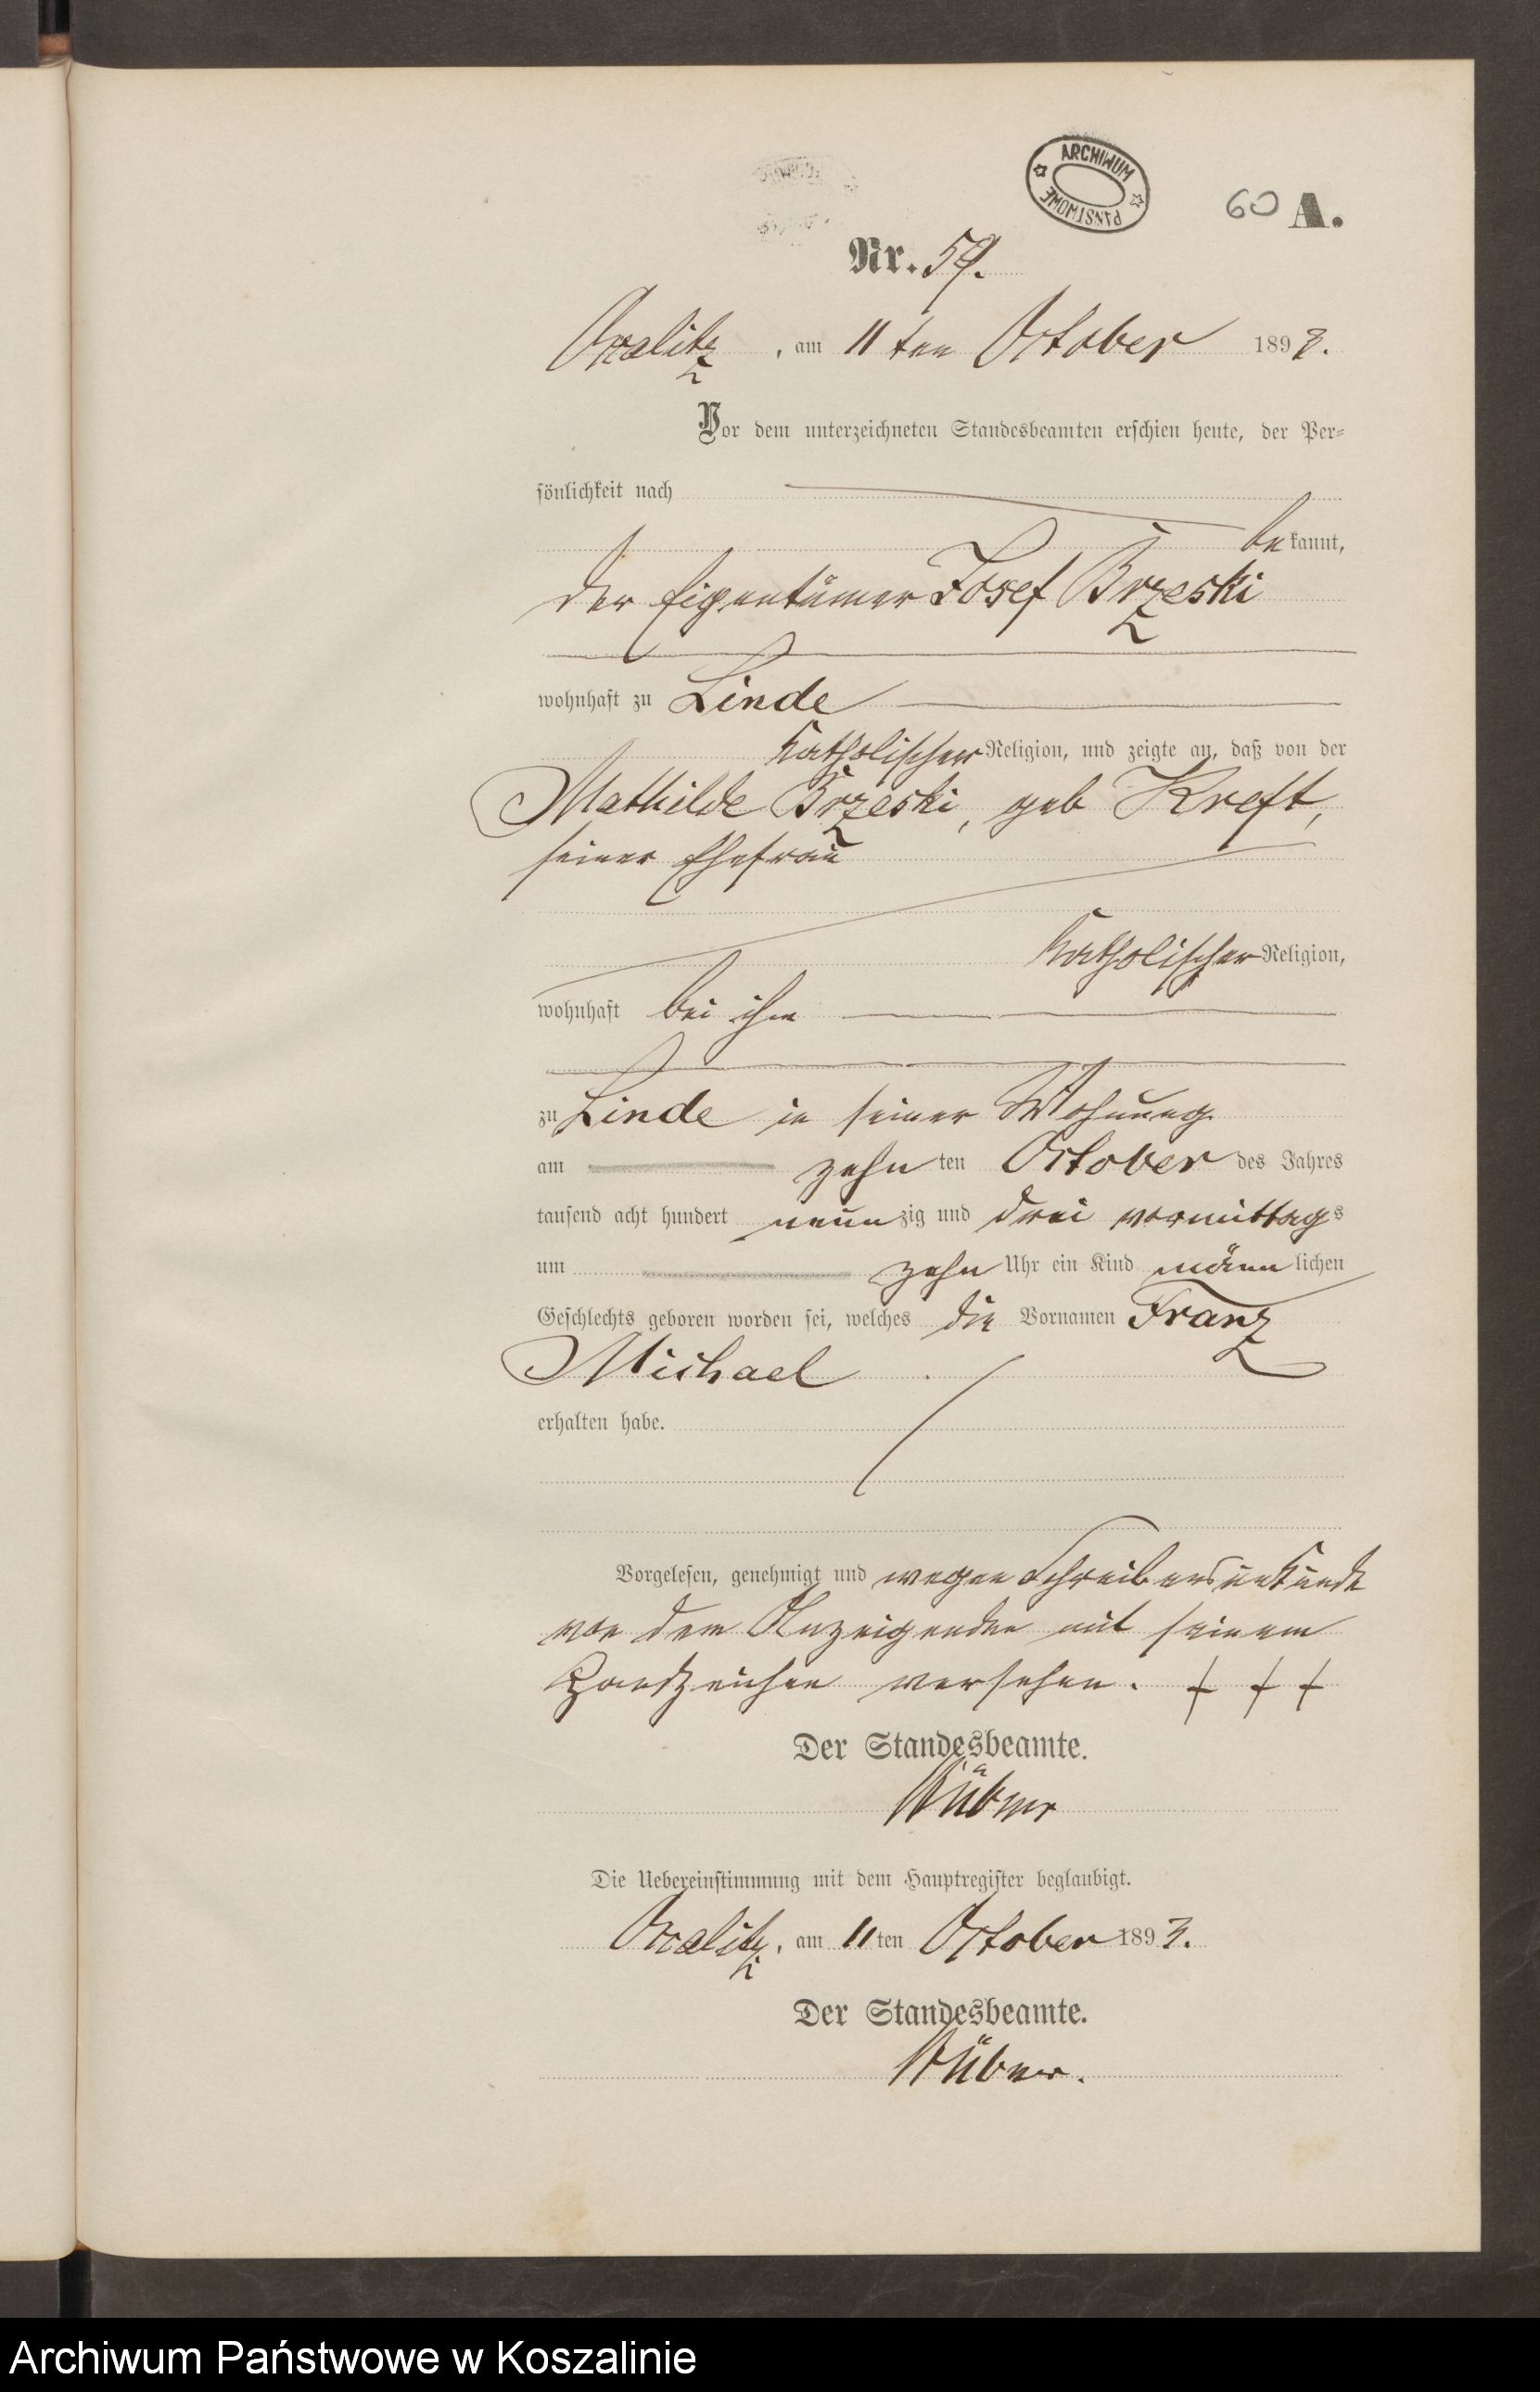 ARCHIWUM PAŃSTWOWE
60 A.
Nr. 59.
Oslalitz, am 11ten October 1893.
Vor dem unterzeichneten Standesbeamten erschien heute, der Per-
sönlichkeit nach
bekannt,
der Eigentümer Josef Brzeski
wohnhaft zu Linde
katholischer Religion, und zeigte an, daß von der
Mathilde Brzeski, geb Kreft,
seiner Ehefrau
katholischer Religion,
wohnhaft bei ihm
zu Linde in seiner Wohnung
am zehnten October des Jahres
tausend acht hundert neunzig und drei vormittags
um zehn Uhr ein Kind männlichen
Geschlechts geboren worden sei, welches die Vornamen Franz
Michael
erhalten habe.
Vorgelesen, genehmigt und wegen Schreibensunkunde
von dem Anzeigenden mit seinem
Handzeichen versehen. + + +
Der Standesbeamte.
Die Uebereinstimmung mit dem Hauptregister beglaubigt.
am 11ten October 1893.
Der Standesbeamte.
Archiwum Państwowe w Koszalinie